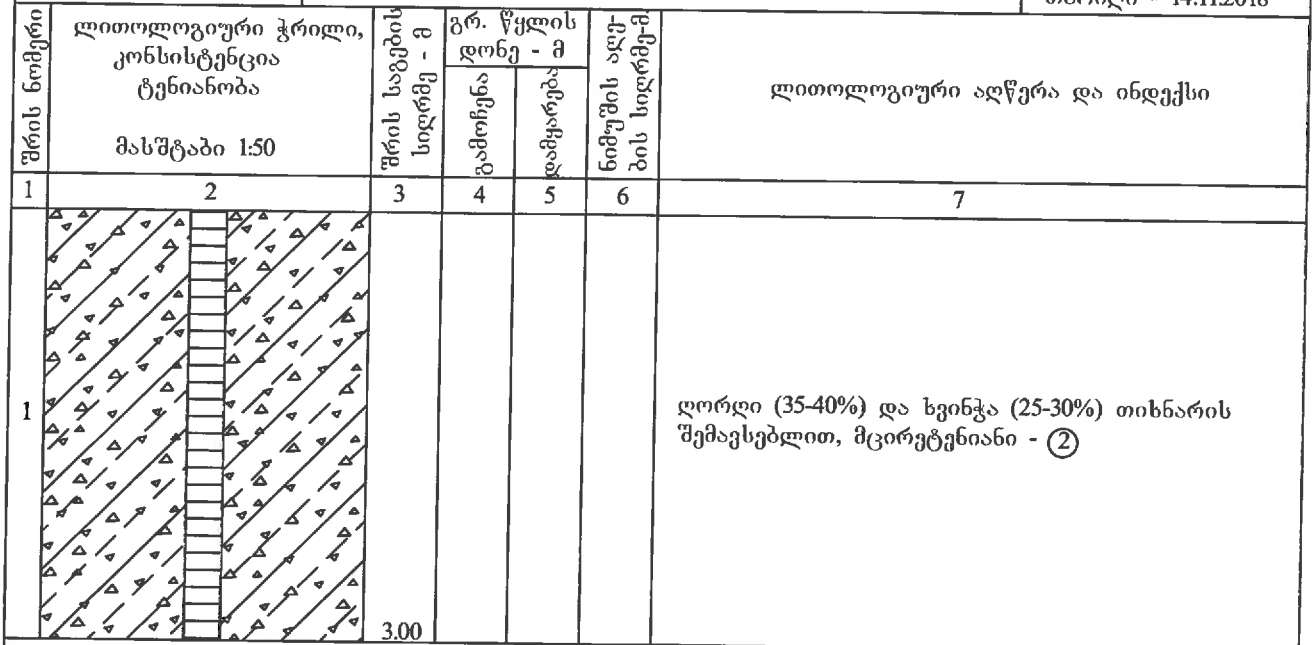 14.11.2018
შრის ნომერი
ლითოლოგიური ჭრილი,
კონსისტენცია
ტენიანობა
მასშტაბი 1:50
შრის საგების
სიღრმე - მ
გრ. წყლის
დონე - მ
გამოჩენა
დამყარება
ნიმუშის აღე-
ბის სიღრმე-მ.
ლითოლოგიური აღწერა და ინდექსი
1 2 3 4 5 6 7
1
ღორღი (35-40%) და ხვინჭა (25-30%) თიხნარის
შემავსებლით, მცირეტენიანი - 2
3.00